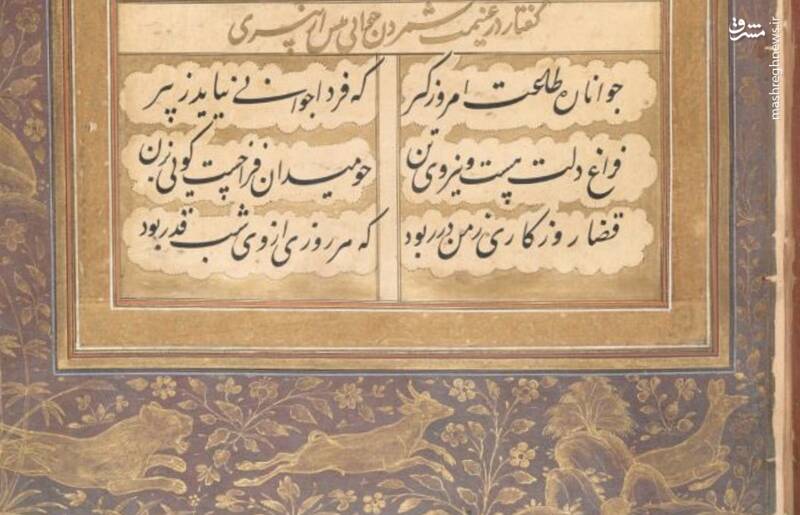 گفتار در غنیمت شمردن جوانی پیش از پیری
جوانا ره طاعت امروز گیر که فردا جوانی نیاید ز پیر
فراغ دلت هست و نیروی تن چو میدان فراخست گویی بزن
قضا روزگاری ز من در ربود که هر روزی از وی شب قدر بود
مشرق
mashreghnews.ir